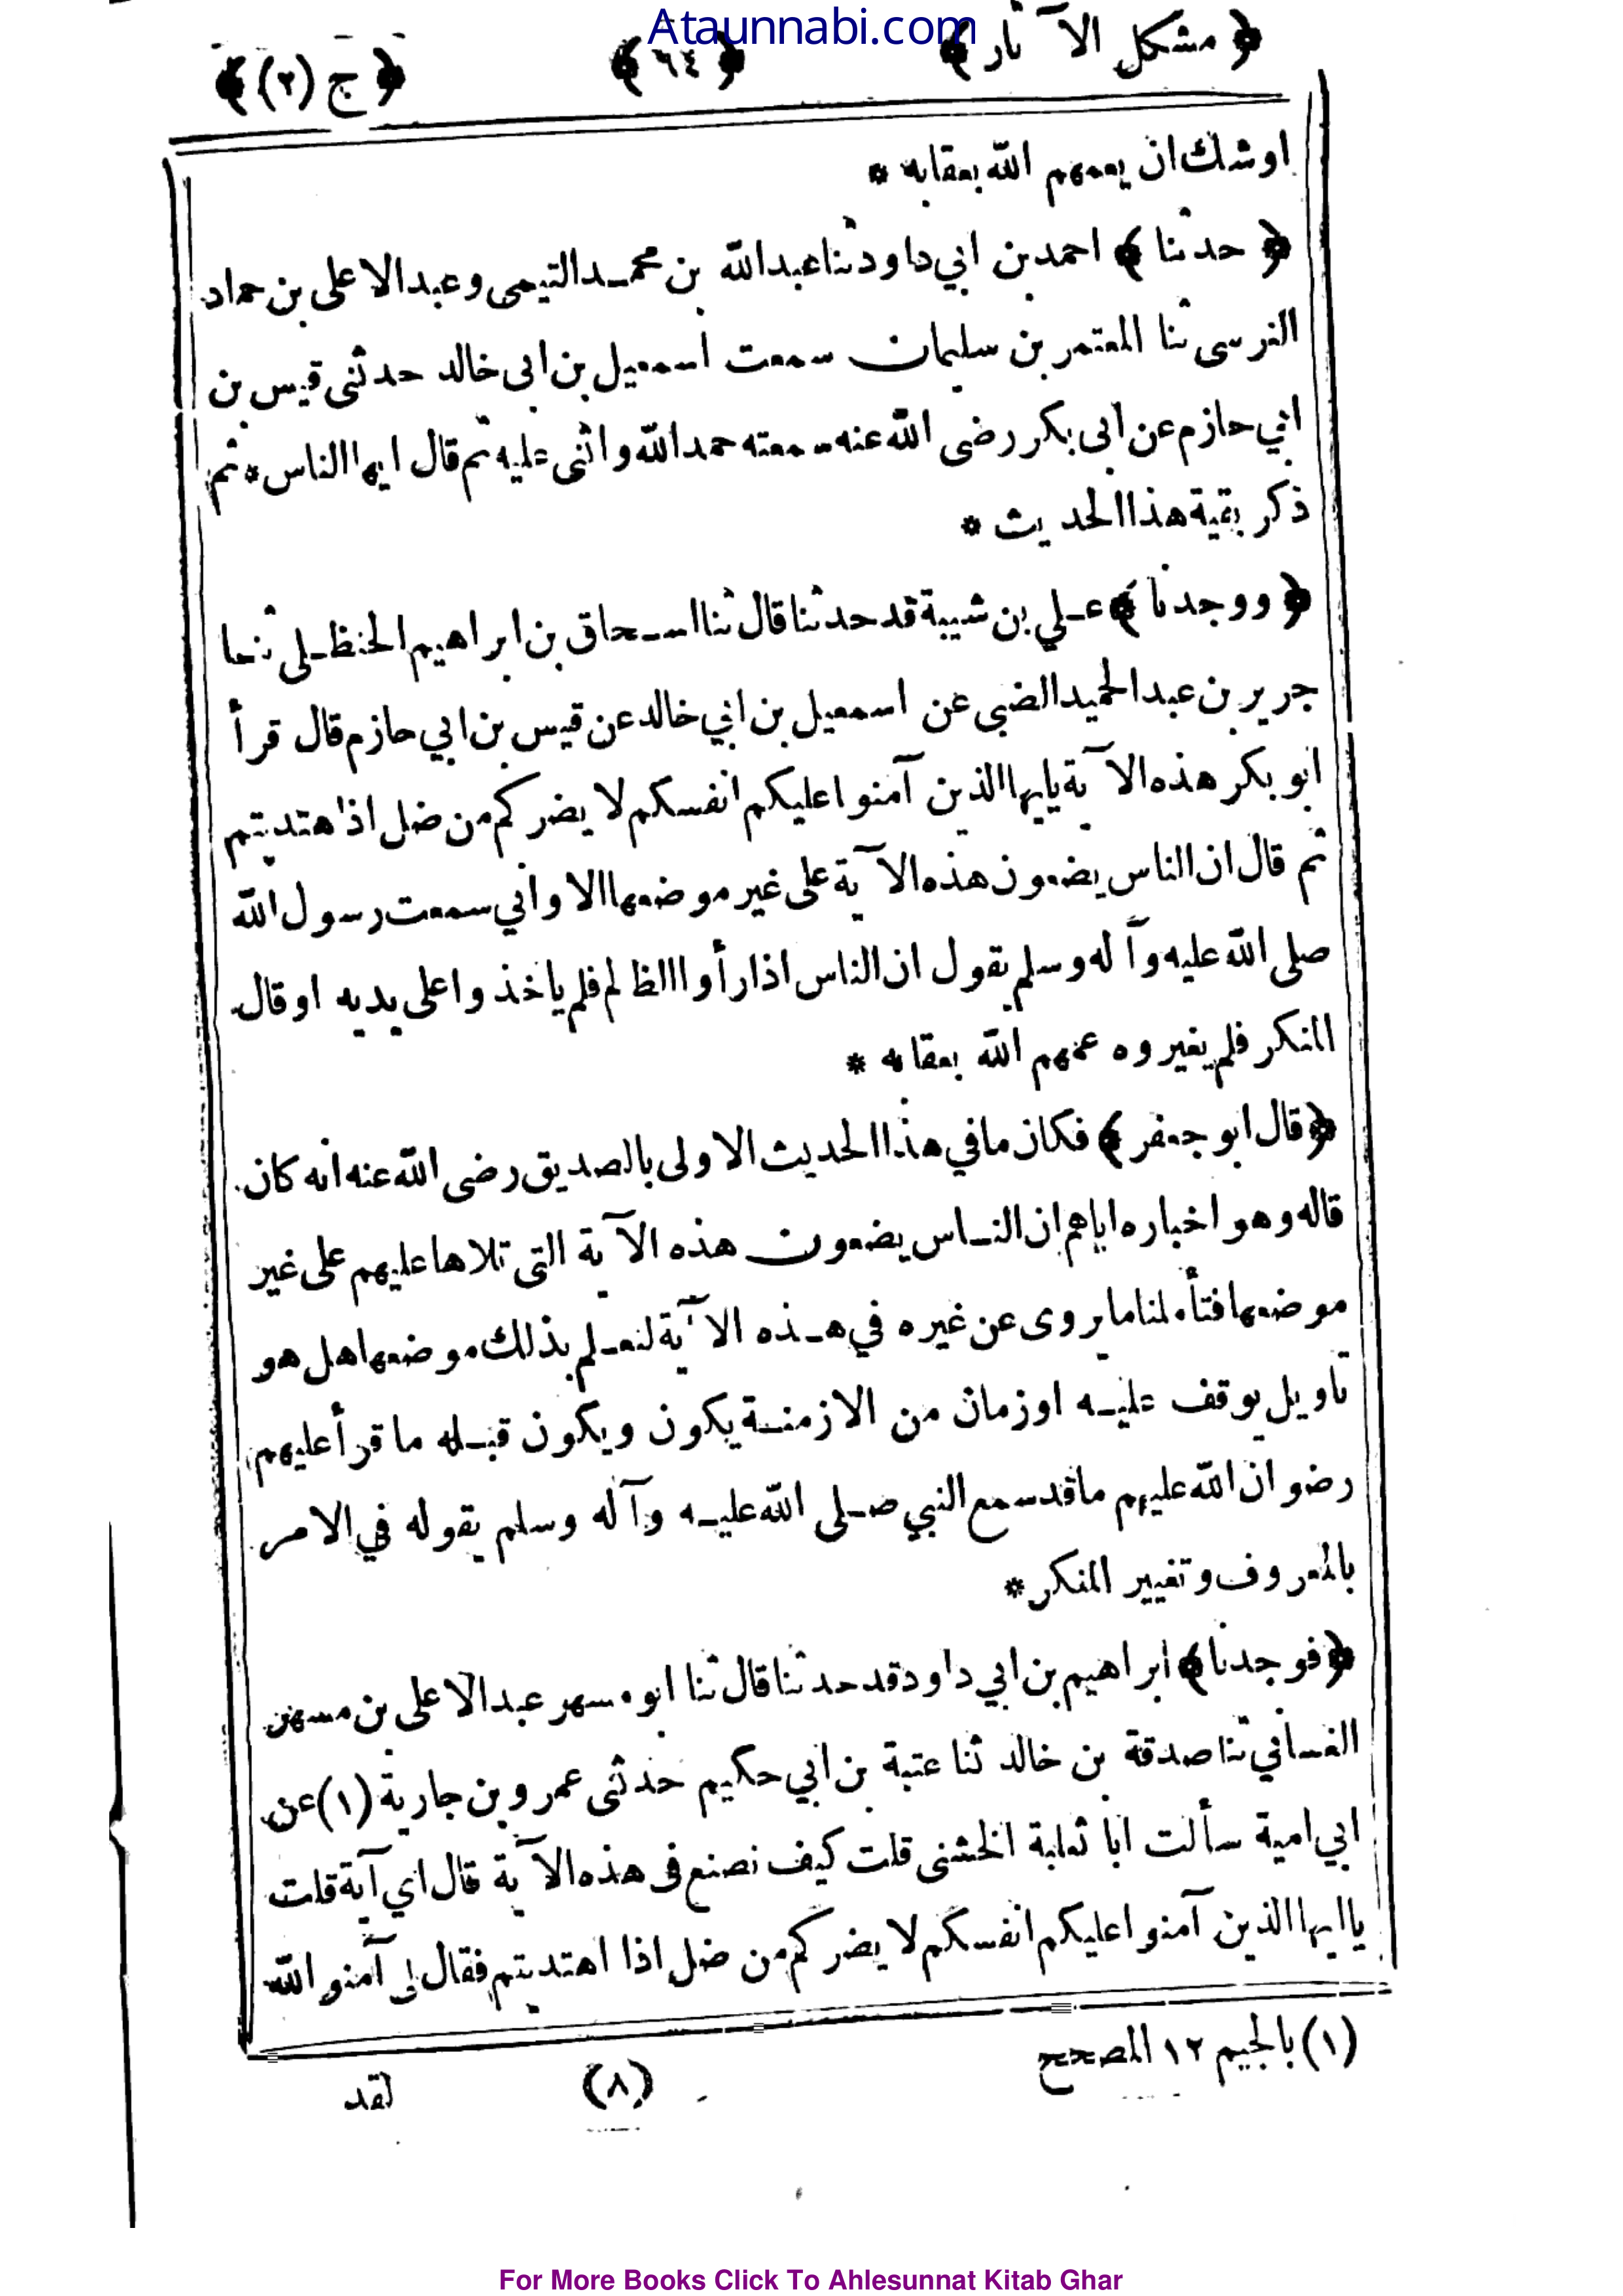 Ataunnabi.com
﴿ مشكل الآثار ﴾ ﴿ ٦٤ ﴾ ﴿ ج (٢) ﴾
اوشك ان يعمهم الله بعقابه *
﴿ حدثنا ﴾ احمد بن ابي داود ثنا عبد الله بن محمد التيمى وعبد الاعلى بن حماد
النرسى ثنا المعتمر بن سليمان سمعت اسمعيل بن ابى خالد حدثنى قيس بن
ابي حازم عن ابى بكر رضى الله عنه سمعته حمد الله واثنى عليه ثم قال ايها الناس * ثم
ذكر بقية هذا الحديث *
﴿ ووجدنا ﴾ علي بن شيبة قد حدثنا قال ثنا اسحاق بن ابراهيم الحنظلى ثنا
جرير بن عبد الحميد الضبى عن اسمعيل بن ابي خالد عن قيس بن ابي حازم قال قرأ
ابو بكر هذه الآية يايها الذين آمنوا عليكم انفسكم لا يضركم من ضل اذا هتديتم
ثم قال ان الناس يضعون هذه الآية على غير موضعها الا واني سمعت رسول الله
صلى الله عليه وآله وسلم يقول ان الناس اذا رأوا الظالم فلم ياخذوا على يديه او قال
المنكر فلم يغيروه عمهم الله بعقابه *
﴿ قال ابو جعفر ﴾ فكان ما في هذا الحديث الاولى بالصديق رضى الله عنه انه كان
قاله وهو اخباره اياهم ان الناس يضعون هذه الآية التى تلاها عليهم على غير
موضعها فتأملنا ما يروى عن غيره في هذه الآية لنعلم بذلك موضعها هل هو
تاويل يوقف عليه او زمان من الازمنة يكون ويكون قبله ما قرأ عليهم
رضوان الله عليهم ما قد سمع النبي صلى الله عليه وآله وسلم يقوله في الامر
بالمعروف وتغيير المنكر *
﴿ فوجدنا ﴾ ابراهيم بن ابي داود قد حدثنا قال ثنا ابو مسهر عبد الاعلى بن مسهر
الغساني ثنا صدقة بن خالد ثنا عتبة بن ابي حكيم حدثنى عمرو بن جارية (١) عن
ابي امية سألت ابا ثعلبة الخشنى قلت كيف نصنع فى هذه الآية قال اي آية قلت
يا ايها الذين آمنوا عليكم انفسكم لا يضركم من ضل اذا اهتديتم فقال لى آمنو الله
(١) بالجيم ١٢ المصحح
(٨)
لقد
For More Books Click To Ahlesunnat Kitab Ghar